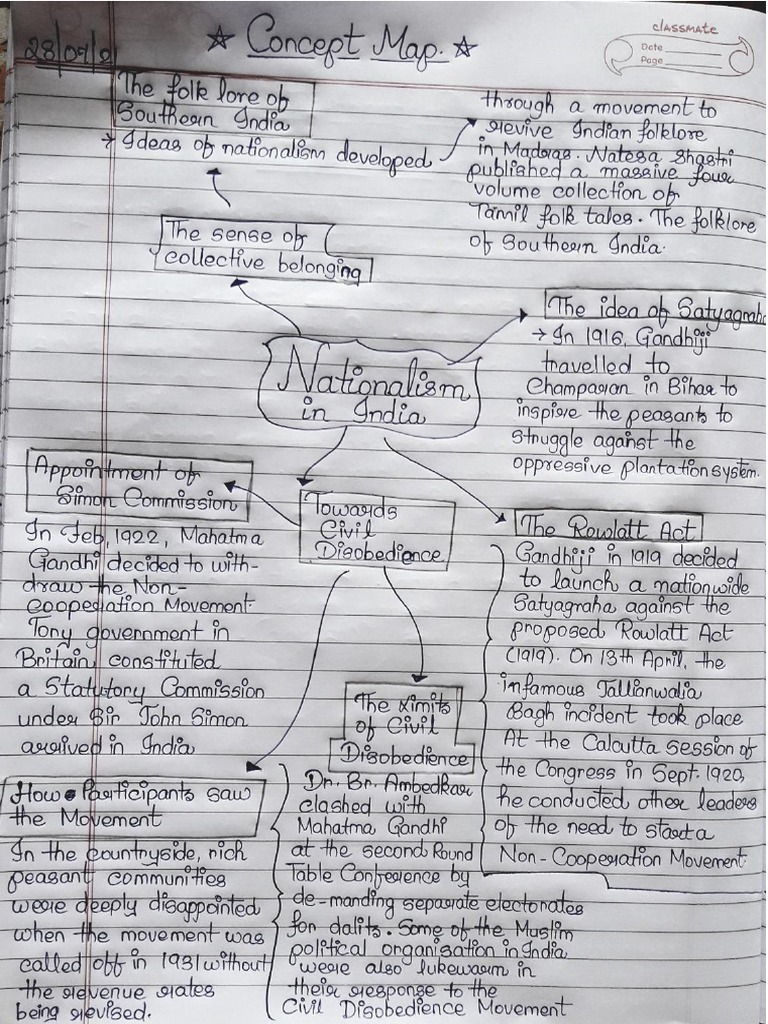 28/09/21
☆ Concept Map. ☆
classmate
Date
Page
The folk lore of
Southern India
→ Ideas of nationalism developed
through a movement to
revive Indian folklore
in Madras. Natesa Shastri
published a massive four
volume collection of
Tamil folk tales. The folklore
of Southern India.
The sense of
collective belonging
The idea of Satyagraha
→ In 1916, Gandhiji
travelled to
Champaran in Bihar to
inspire the peasants to
struggle against the
oppressive plantation system.
Nationalism
in India
Appointment of
Simon Commission
In Feb, 1922, Mahatma
Gandhi decided to with-
draw the Non-
cooperation Movement.
Tony government in
Britain, constituted
a Statutory Commission
under Sir John Simon
arrived in India
Towards
Civil
Disobedience
The Rowlatt Act
Gandhiji in 1919 decided
to launch a nationwide
Satyagraha against the
proposed Rowlatt Act
(1919). On 13th April, the
infamous Jallianwalia
Bagh incident took place
At the Calcutta session of
the Congress in Sept. 1920,
he conducted other leaders
of the need to start a
Non-Cooperation Movement.
The Limits
of Civil
Disobedience
Dr. Br. Ambedkar
clashed with
Mahatma Gandhi
at the second Round
Table Conference by
de-manding separate electorates
for dalits. Some of the Muslim
political organisation in India
were also lukewarm in
their response to the
Civil Disobedience Movement
How Participants saw
the Movement
In the countryside, rich
peasant communities
were deeply disappointed
when the movement was
called off in 1931 without
the revenue rates
being revised.